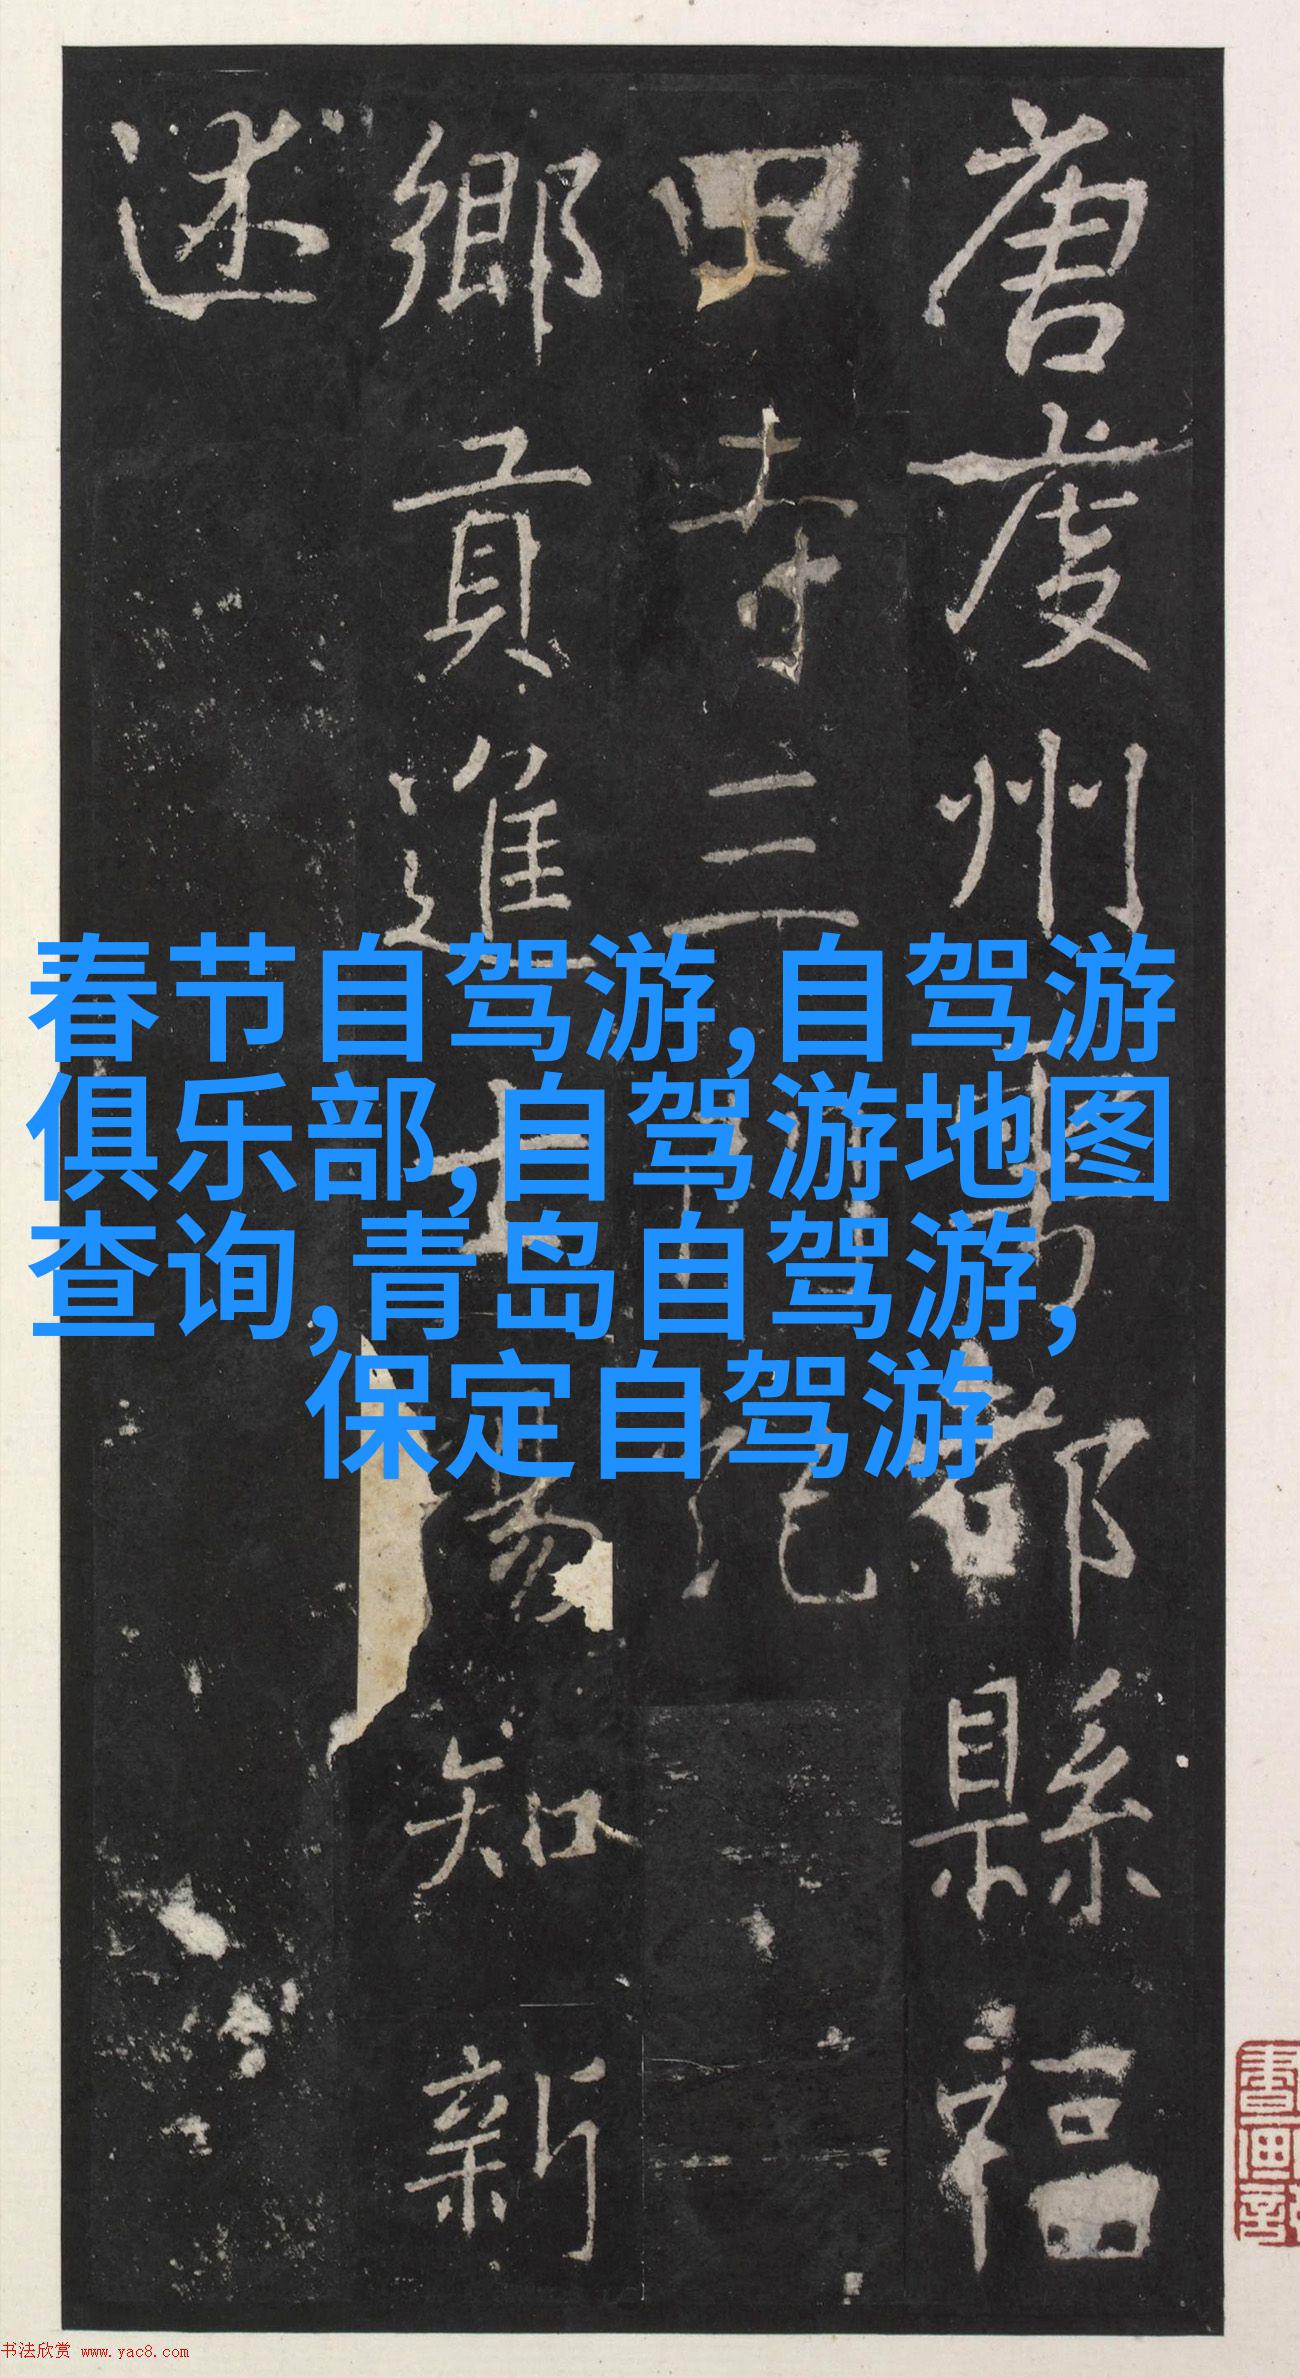 唐虔州雩都縣福
田寺三門記
鄉貢進士楊知新
述
春节自驾游,自驾游
俱乐部,自驾游地图
查询,青岛自驾游,
保定自驾游
书法欣赏 www.yac8.com